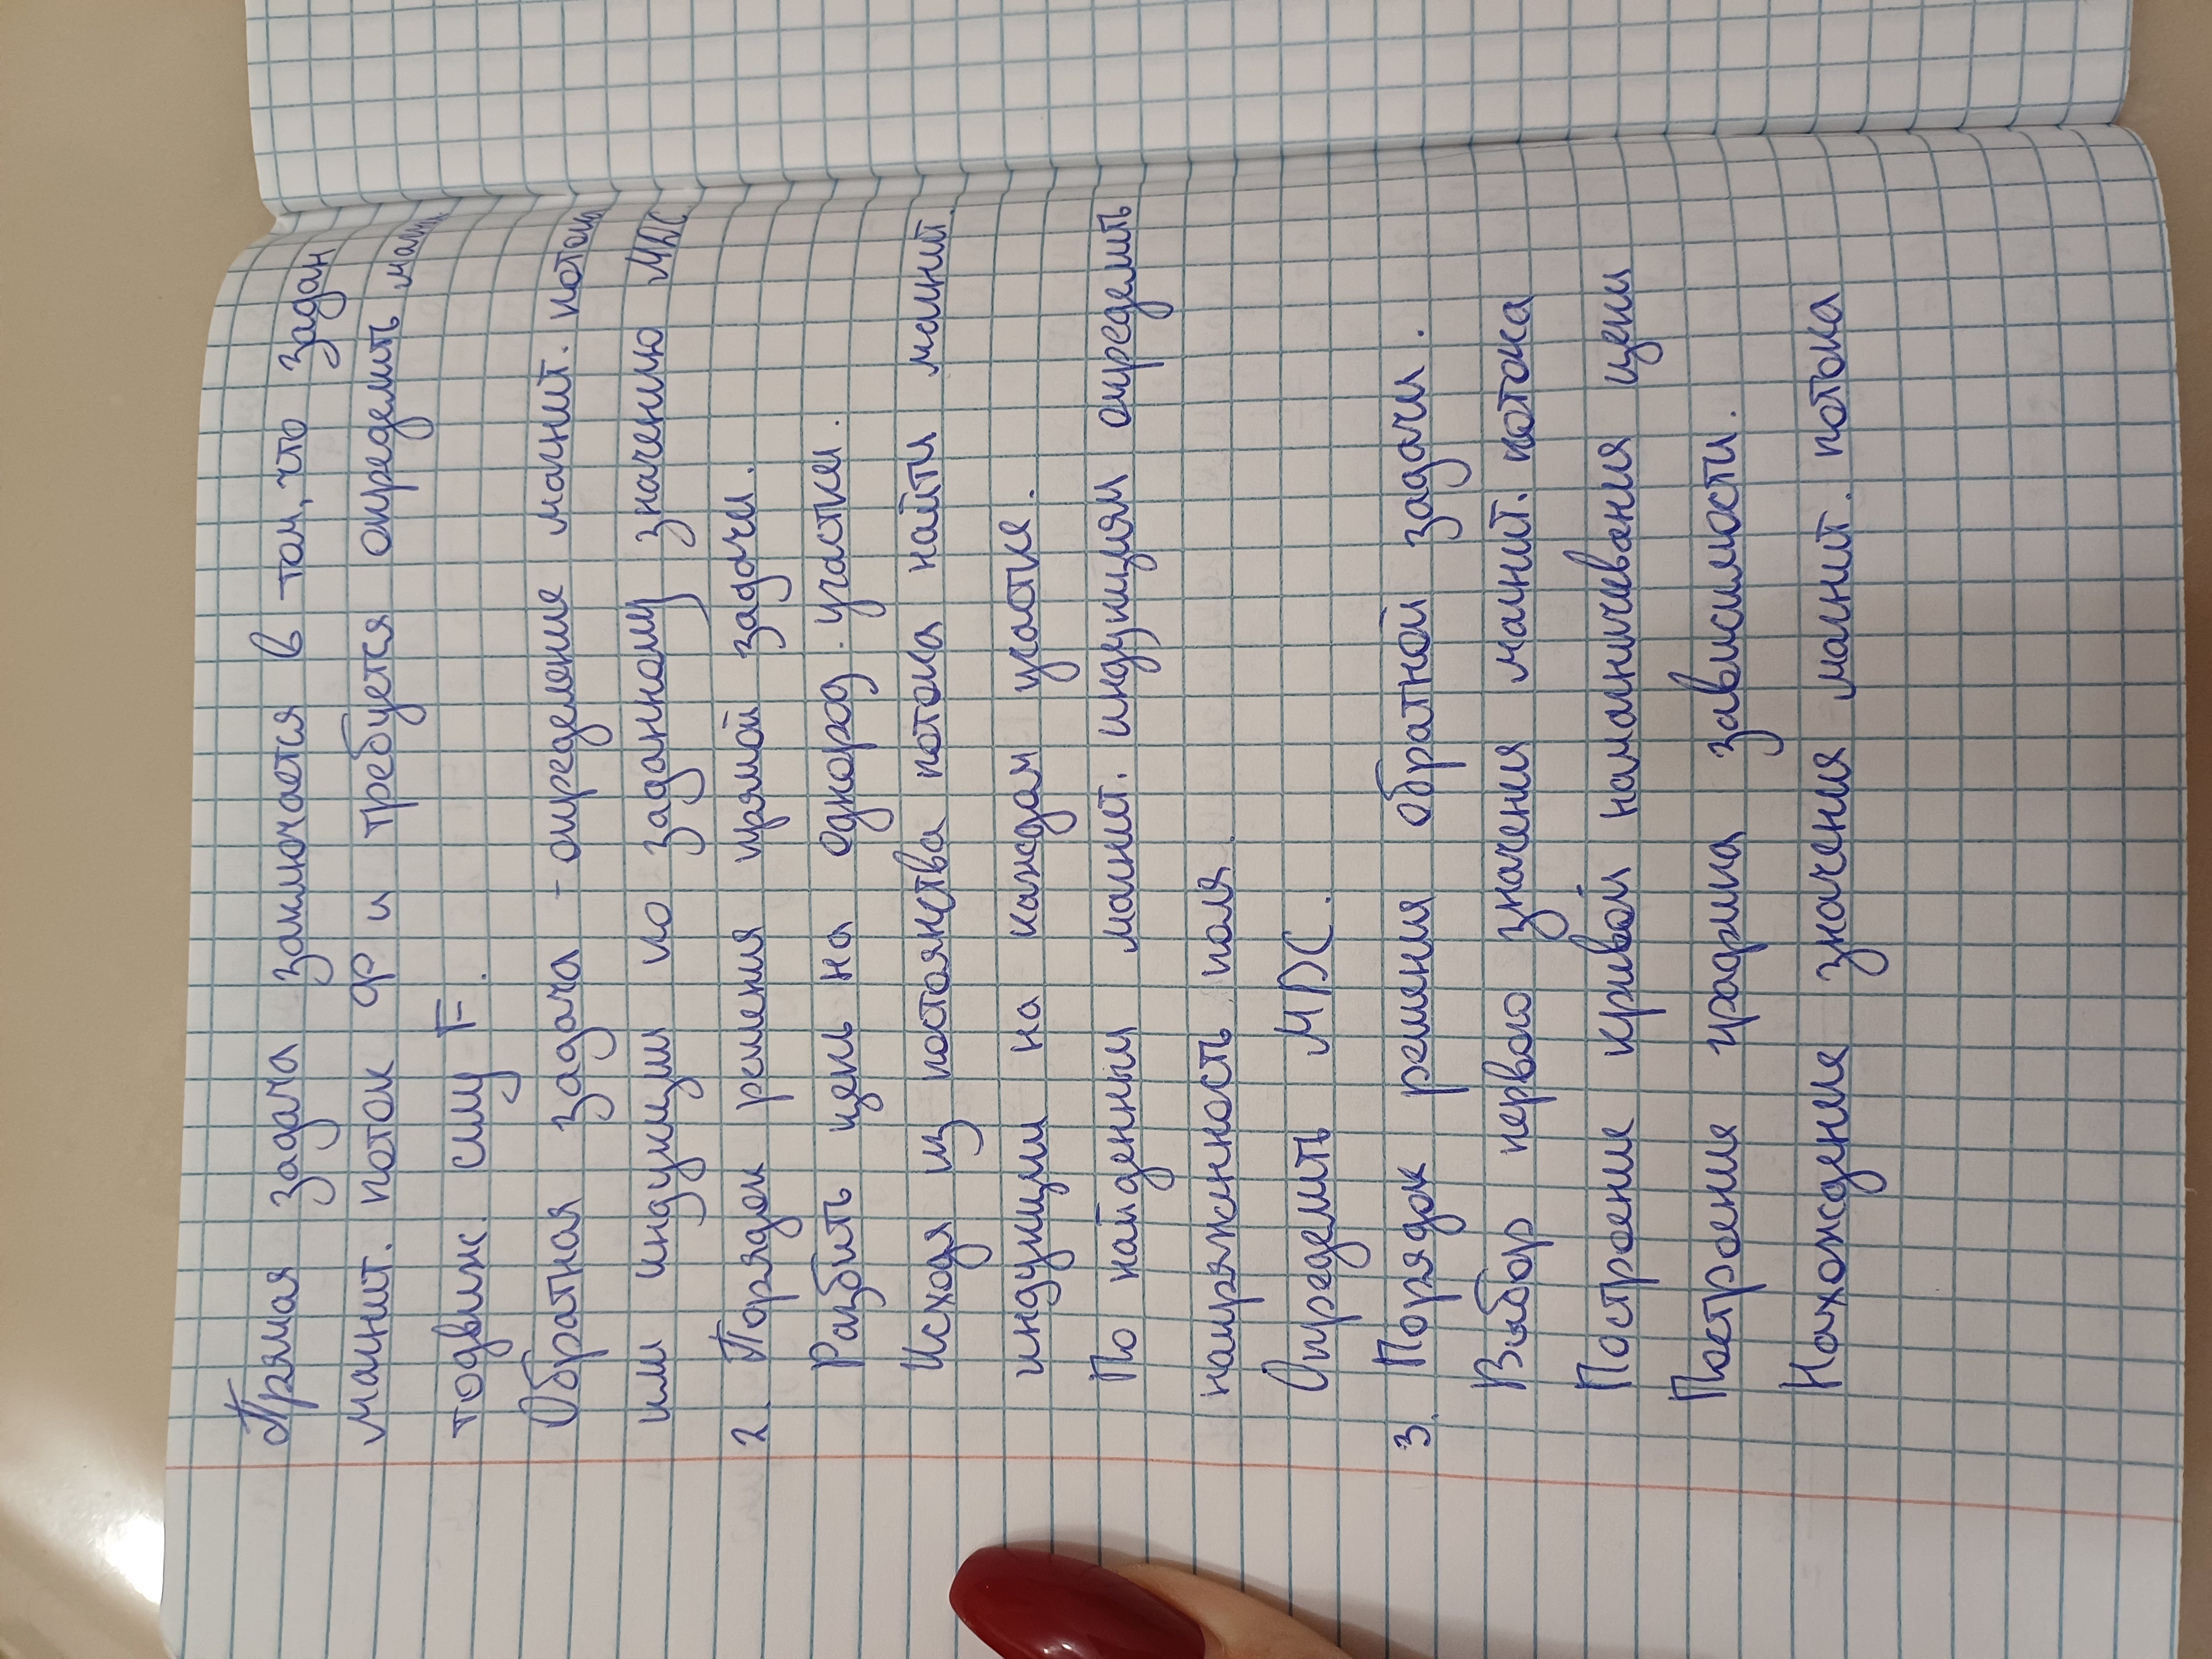 Прямая задача заключается в том, что задан
магнит. поток Ф и требуется определить магн
тодвиж. силу F.
Обратная задача - определение магнит. поток
или индукции по заданному значению МДС
2. Порядок решения прямой задачи.
Разбить цепь на однород. участки.
Исходя из постоянства потока найти магнит.
индукции на каждом участке.
По найденным магнит. индукциям определить
напряженность поля.
Определить МДС.
3. Порядок решения обратной задачи.
Выбор первого значения магнит. потока
Построение кривой намагничевания цепи
Построение графика зависимости.
Нахождение значения магнит. потока